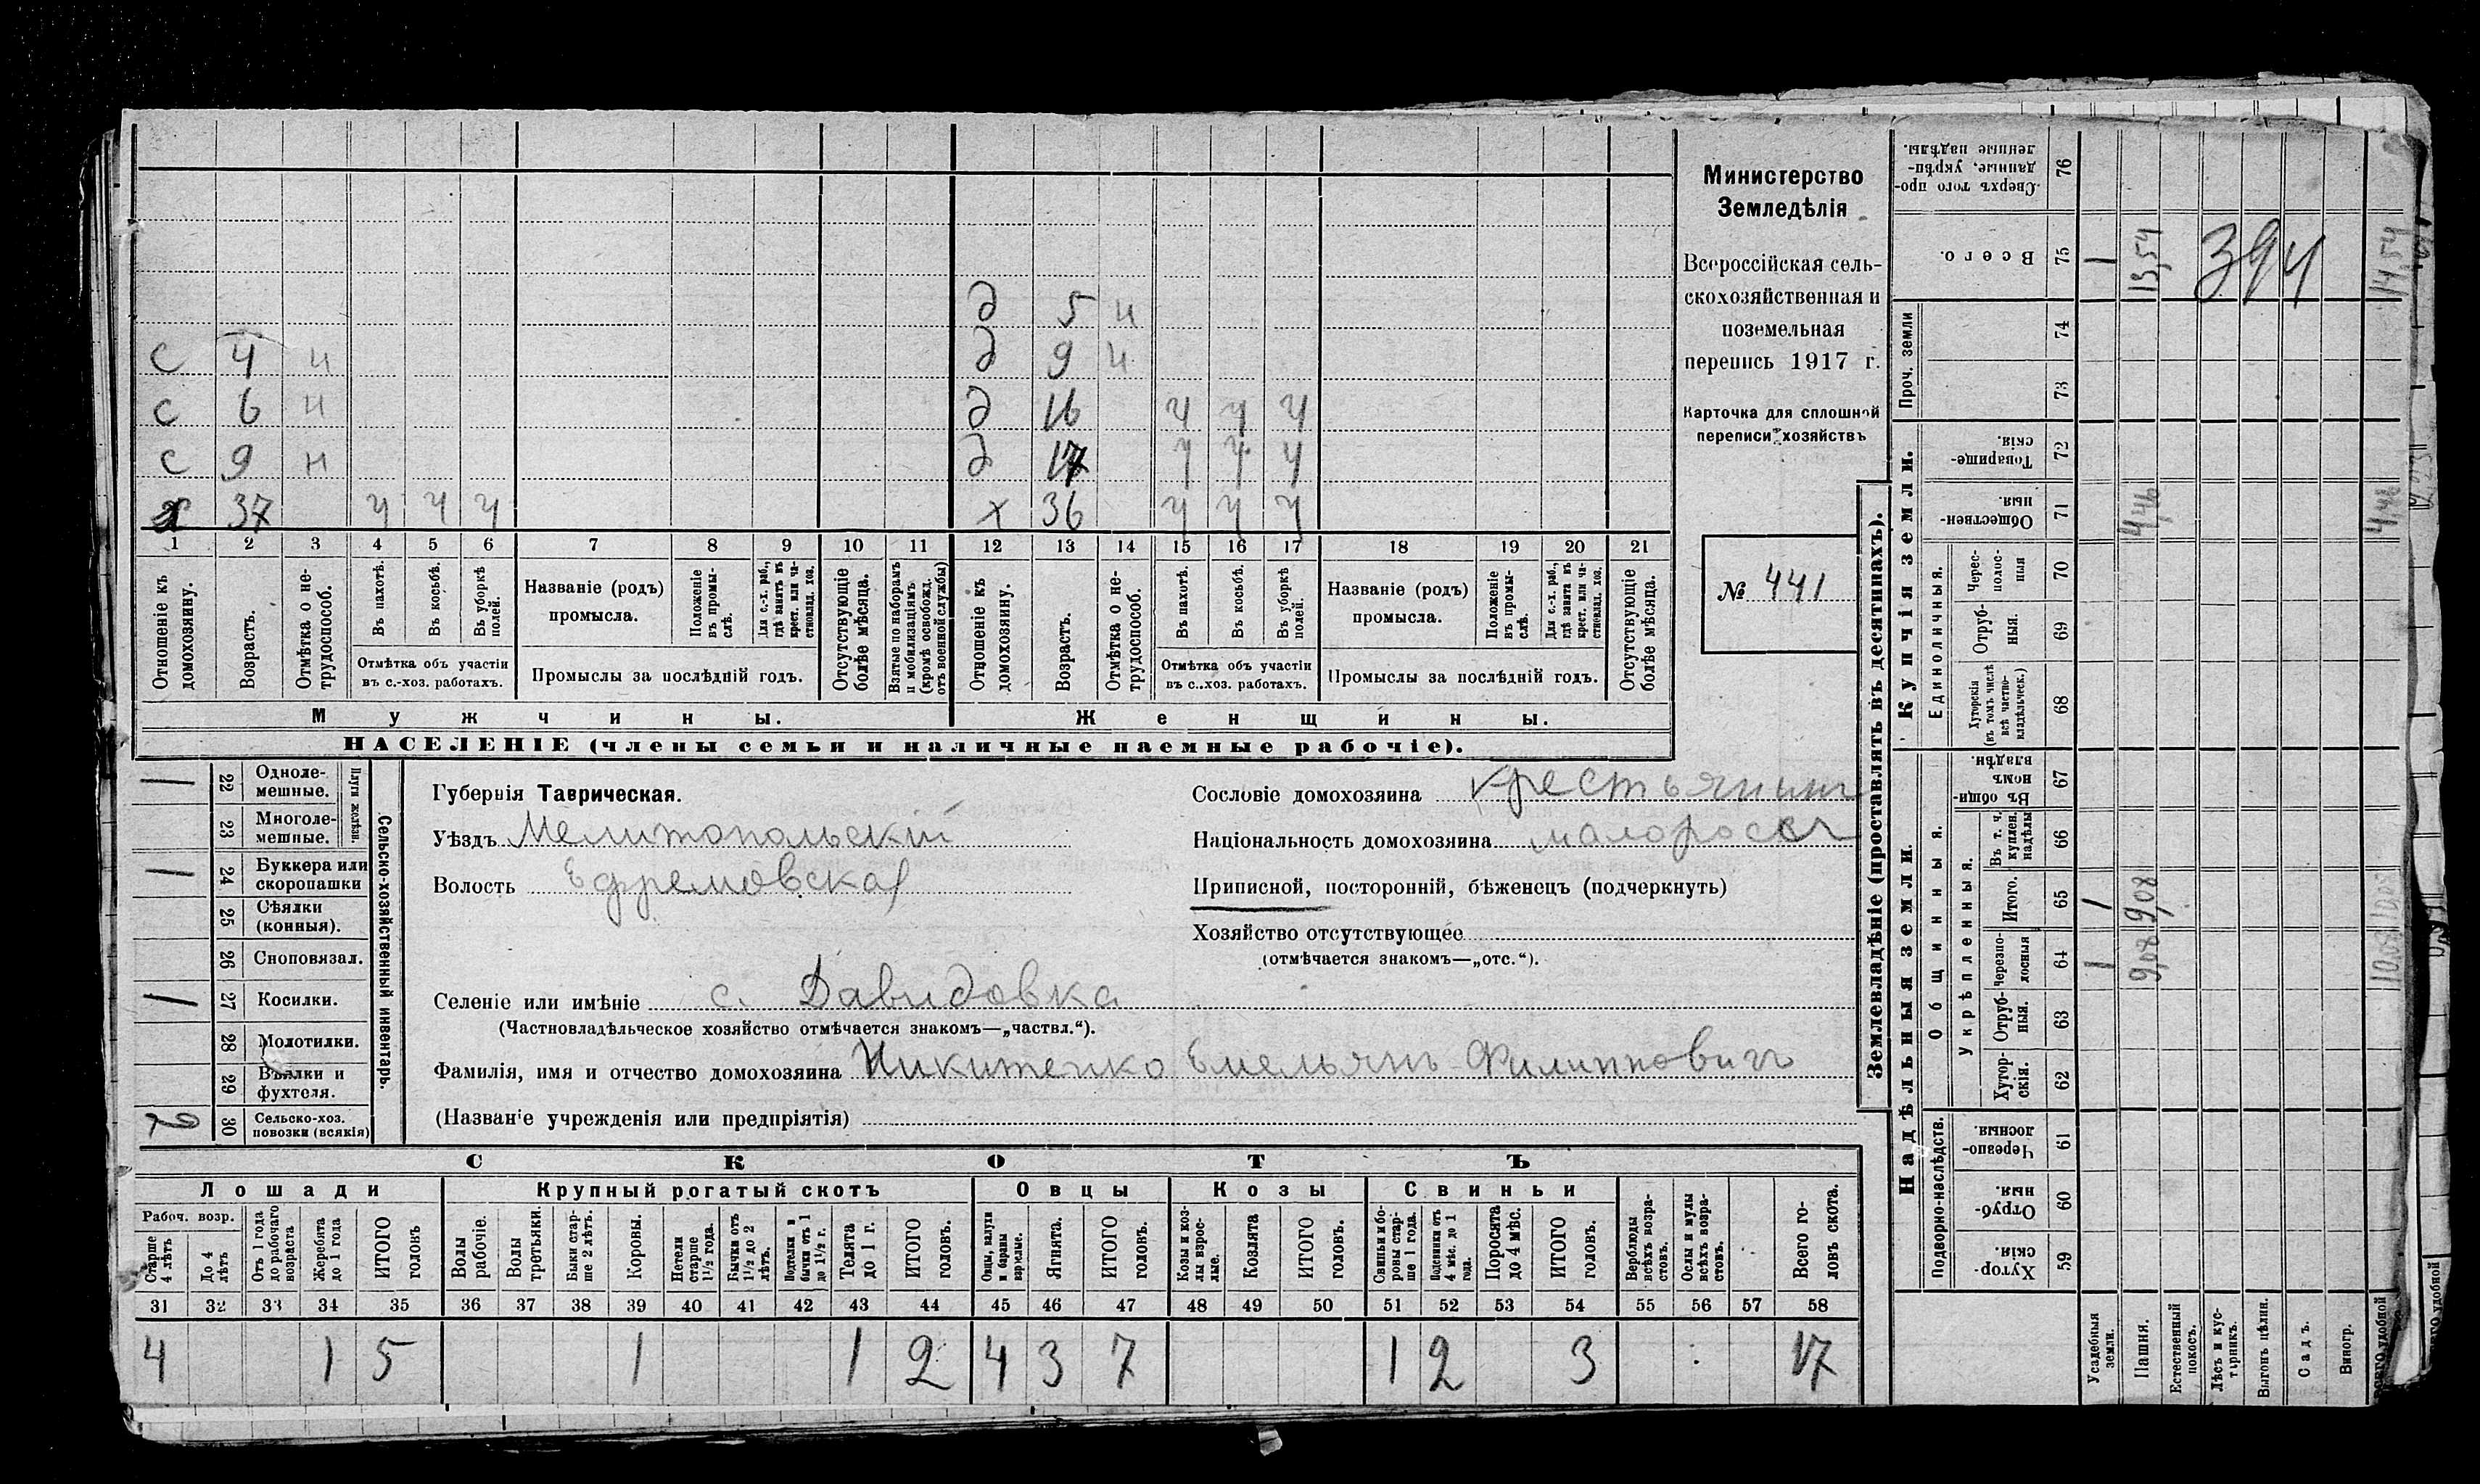 д 5 н
с 4 н д 9 н
с 6 н д 16 ч ч ч
с 9 н д 17 ч ч ч
х 37 ч ч ч х 36 ч ч ч
1 2 3 4 5 6 7 8 9 10 11 12 13 14 15 16 17 18 19 20 21
Отношеніе къ домохозяину.
Возрастъ.
Отмѣтка о не-трудоспособ.
Въ пахотѣ.
Въ косьбѣ.
Въ уборкѣ полей.
Отмѣтка объ участіи въ с.-хоз. работахъ.
Названіе (родъ) промысла.
Положеніе въ промы-слѣ.
Для с.-х. раб., гдѣ занятъ въ крест. или ча-стновлад. хоз.
Промыслы за послѣдній годъ.
Отсутствующіе болѣе мѣсяца.
Взятые по наборамъ и мобилизаціямъ (кромѣ освобожд. отъ военной службы)
Отношеніе къ домохозяину.
Возрастъ.
Отмѣтка о не-трудоспособ.
Въ пахотѣ.
Въ косьбѣ.
Въ уборкѣ полей.
Отмѣтка объ участіи въ с.-хоз. работахъ.
Названіе (родъ) промысла.
Положеніе въ промы-слѣ.
Для с.-х. раб., гдѣ занятъ въ крест. или ча-стновлад. хоз.
Промыслы за послѣдній годъ.
Отсутствующіе болѣе мѣсяца.
Мужчины. Женщины.
НАСЕЛЕНІЕ (члены семьи и наличные наемные рабочіе).
Министерство
Земледѣлія
Всероссійская сель-
скохозяйственная и
поземельная
перепись 1917 г.
Карточка для сплошной
переписи хозяйствъ
№ 441
Сельско-хозяйственный инвентарь.
Плуги желѣзн.
1 22 Одноле-мешные.
23 Многоле-мешные.
1 24 Буккера или скоропашки
25 Сѣялки (конныя).
26 Сноповязал.
1 27 Косилки.
28 Молотилки.
29 Вѣялки и фухтеля.
2 30 Сельско-хоз. повозки (всякія)
Губернія Таврическая.
Уѣздъ Мелитопольскій
Волость Ефремовская
Селеніе или имѣніе с. Давидовка
(Частновладѣльческое хозяйство отмѣчается знакомъ—„частвл.“).
Фамилія, имя и отчество домохозяина Никитенко Емельянъ Филипповичъ
(Названіе учрежденія или предпріятія)
Сословіе домохозяина крестьянинъ
Національность домохозяина малороссъ
Приписной, посторонній, бѣженецъ (подчеркнуть)
Хозяйство отсутствующее
(отмѣчается знакомъ—„отс.“).
СКОТЪ
Лошади Крупный рогатый скотъ Овцы Козы Свиньи
Рабоч. возр.
Старше 4 лѣтъ
До 4 лѣтъ
Отъ 1 года до рабочаго возраста
Жеребята до 1 года
ИТОГО головъ
Волы рабочіе.
Волы третьяки.
Быки стар-ше 2 лѣтъ.
Коровы.
Нетели старше 1½ года.
Бычки отъ 1½ до 2 лѣтъ.
Подтелки и бычки отъ 1 до 1½ г.
Телята до 1 г.
ИТОГО головъ.
Овцы, валухи и бараны взрослые.
Ягнята.
ИТОГО головъ.
Козы и коз-лы взрос-лые.
Козлята
ИТОГО головъ.
Свиньи и бо-ровы стар-ше 1 года.
Подсвинки отъ 4 мѣс. до 1 года.
Поросята до 4 мѣс.
ИТОГО головъ.
Верблюды всѣхъ возра-стовъ.
Ослы и мулы всѣхъ возра-стовъ.
Всего го-ловъ скота.
31 32 33 34 35 36 37 38 39 40 41 42 43 44 45 46 47 48 49 50 51 52 53 54 55 56 57 58
4 1 5 1 1 2 4 3 7 1 2 3 17
Землевладѣніе (проставлять въ десятинахъ).
Купчія земли.
Надѣльныя земли.
Сверхъ того про-данные, укрѣп-ленные надѣлы. 76
Всего. 75 1 13,54 394 14,54
Проч. земли 74
73
Товарище-скія. 72
Обществен-ныя 71 4,46 4,46
Единоличныя.
Черес-полос-ныя 70
Отруб-ныя. 69
Хуторскія (въ томъ числѣ всѣ частно-владѣльческ.) 68
Общинныя.
Въ общин-номъ владѣн. 67
Укрѣпленныя.
Въ т. ч. куплен. надѣлы 66
Итого. 65 1 9,08 10,08
Черезпо-лосныя 64 1 9,08 10,08
Отруб-ныя. 63
Хутор-скія. 62
Подворно-наслѣдств.
Черезпо-лосныя. 61
Отруб-ныя. 60
Хутор-скія. 59
Усадебныя земли.
Пашня.
Естественный покосъ.
Лѣсъ и кус-тарникъ.
Выгонъ цѣлин.
Садъ.
Виногр.
Всего удобной